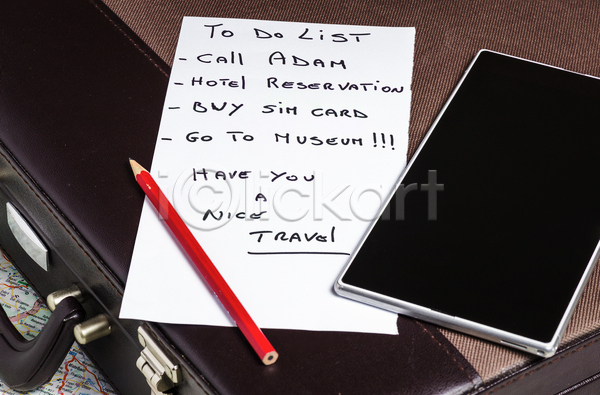 To Do List
- Call Adam
- Hotel Reservation
- Buy Sim Card
- Go To Museum!!!
Have You
A
Nice
Travel
iclickart